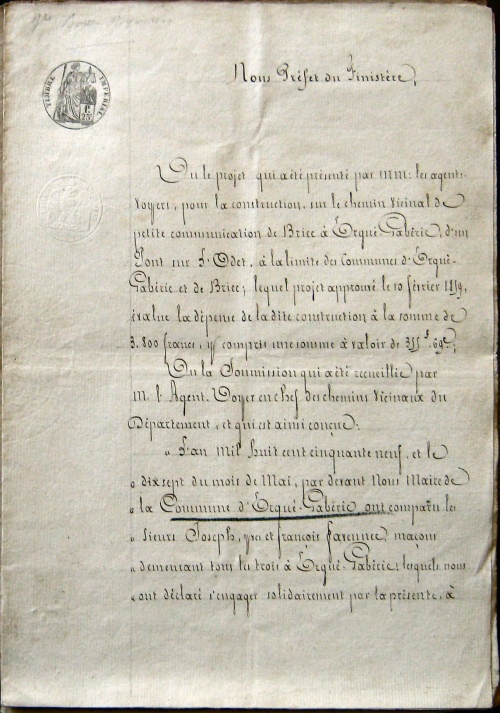 TIMBRE IMPERIAL
Nous Préfet du Finistère,
Vu le projet qui a été présenté par MM: les agents-
voyers, pour la construction, sur le chemin vicinal de
petite communication de Briec à Ergué-Gabéric, d'un
Pont sur l'Odet, à la limite des Communes d'Ergué-
Gabéric et de Briec; lequel projet approuvé le 10 février 1859,
évalue la dépense de la dite construction à la somme de
3.800 francs, y compris une somme à valoir de 355f.69c;
Vu la Soumission qui a été recueillie par
M. l'Agent-Voyer en chef des chemins vicinaux du
Département, et qui est ainsi conçue:
« L'an Mil huit cent cinquante neuf, et le
« dix sept du mois de Mai, par devant Nous Maire de
« la Commune d'Ergué-Gabéric ont comparu les
« Sieurs Joseph, yves et françois favennec, maçons
« demeurant tous les trois à Ergué-Gabéric, lesquels nous
« ont déclaré s'engager solidairement par la présente, à